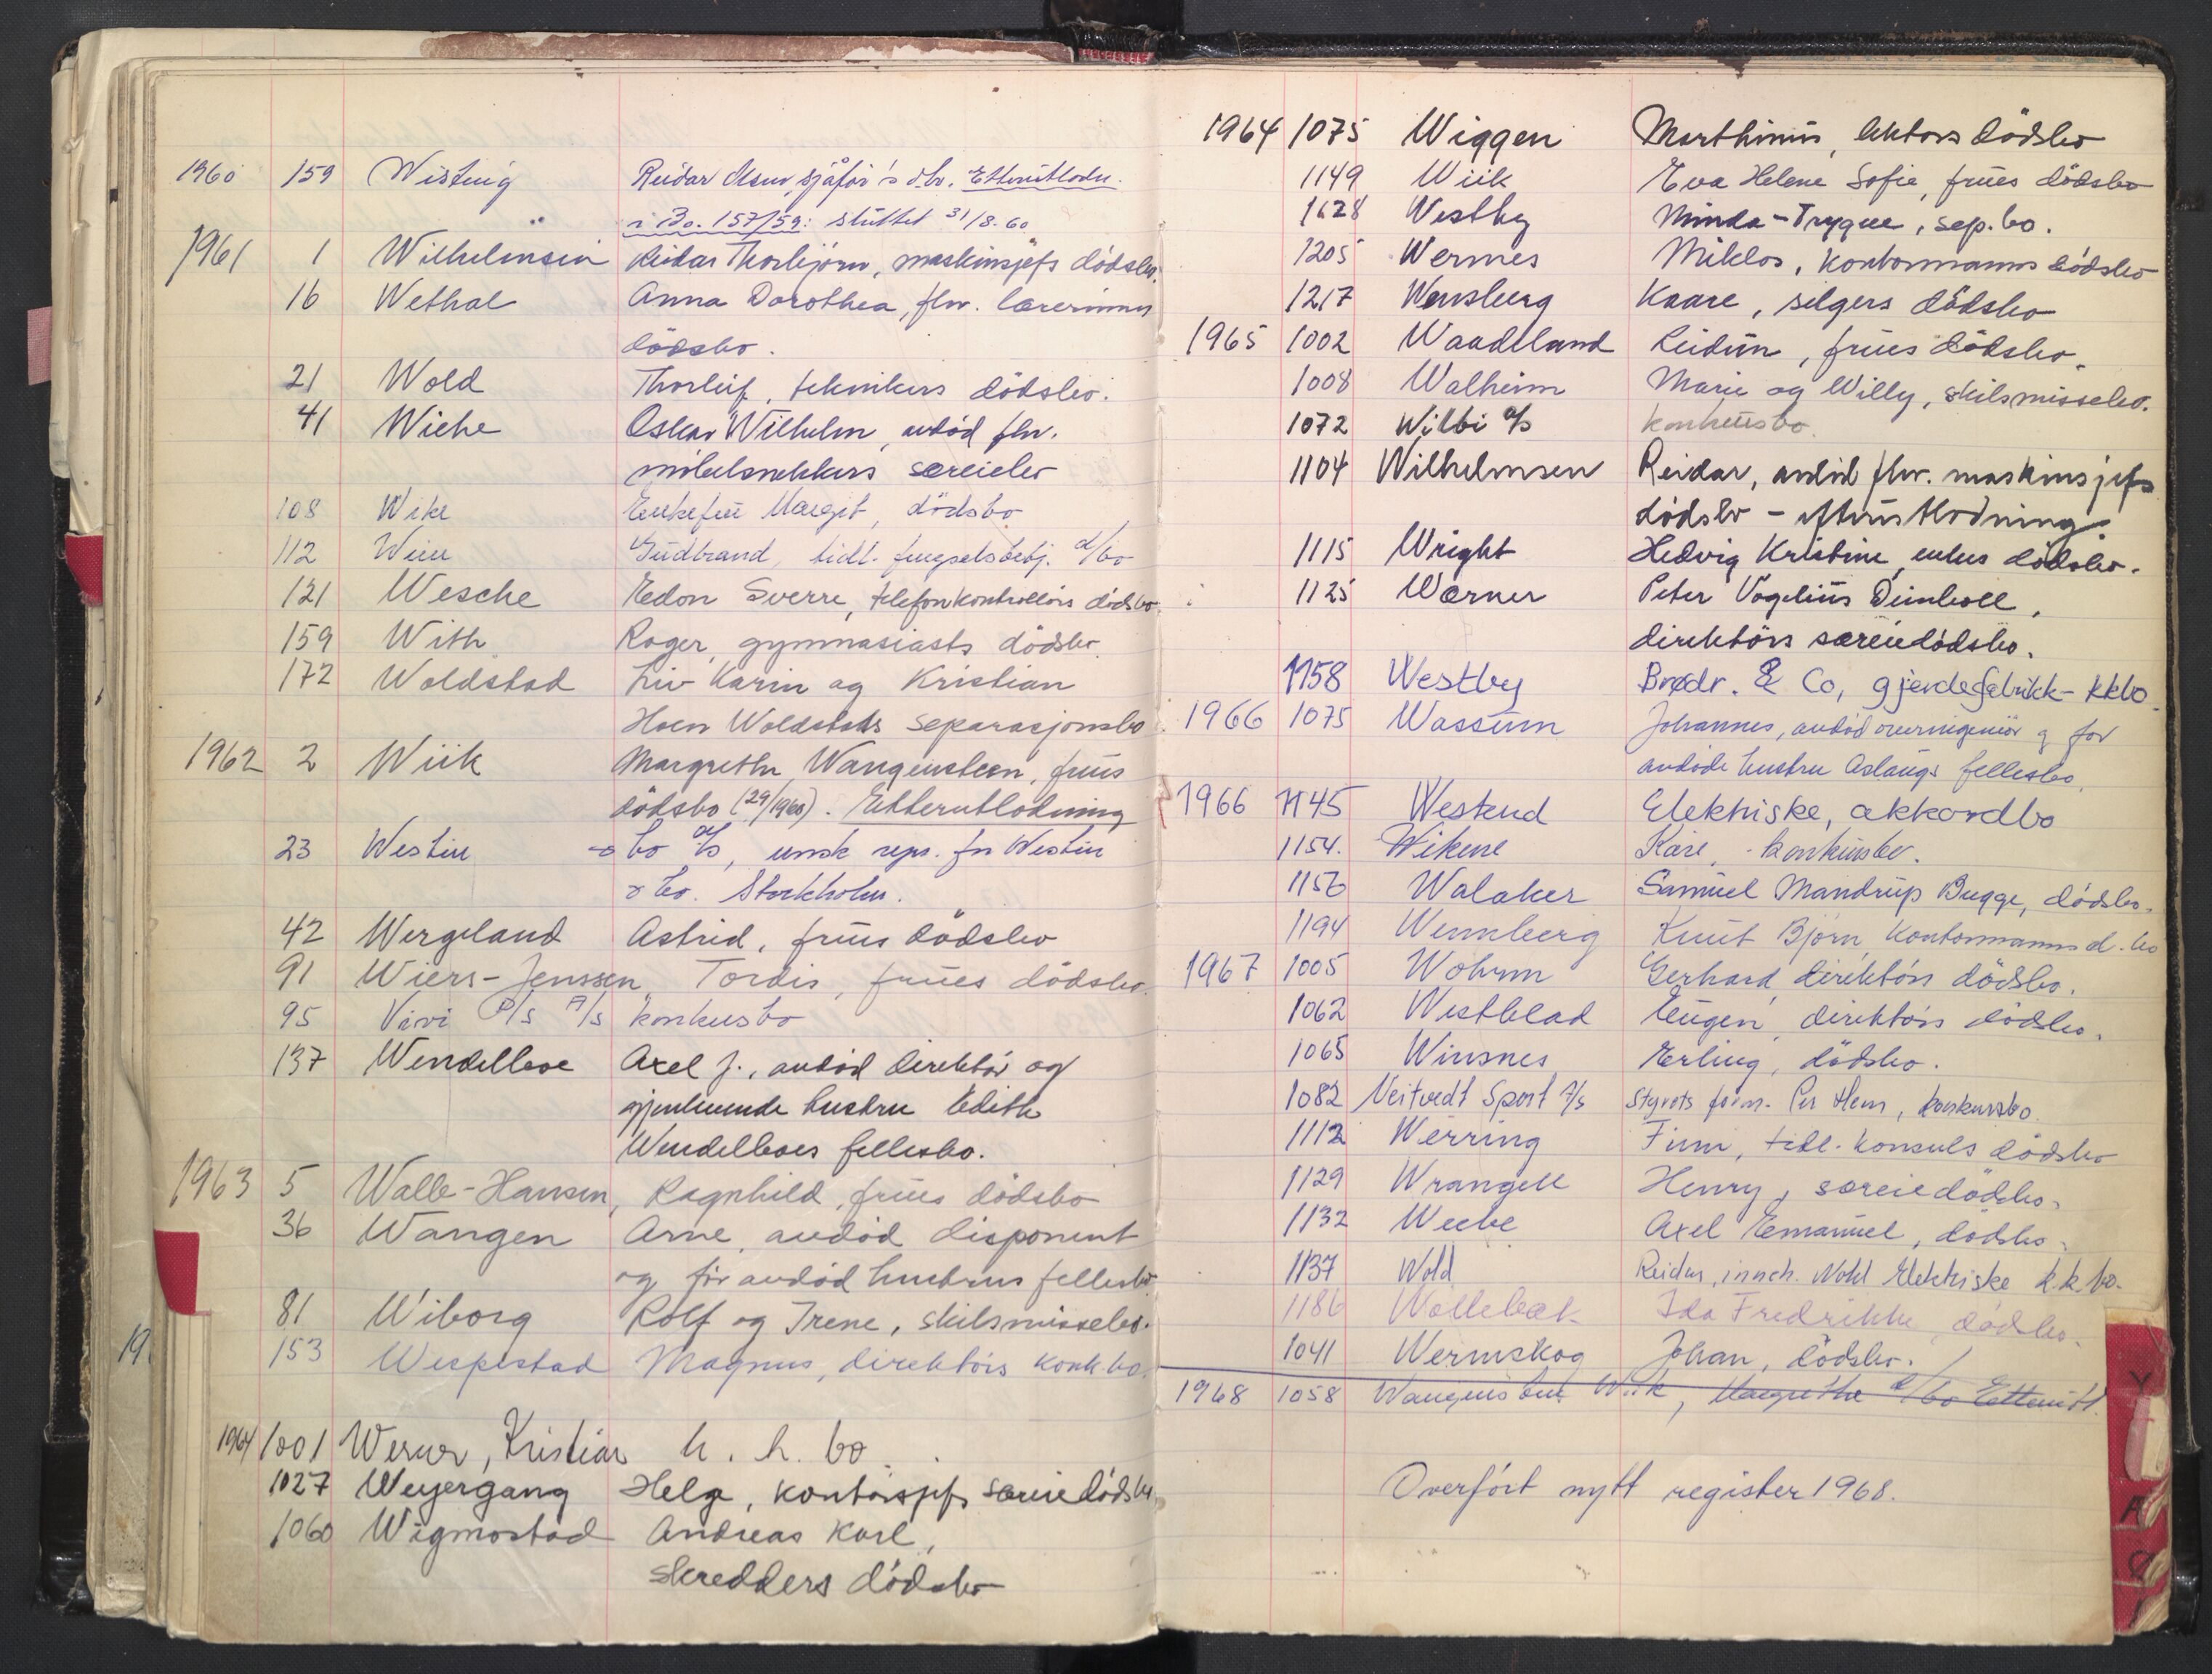 1960 159 Wisting Reidar Olsen, sjåfør's d.bo. Etterutlodn.
i Bo. 157/59: sluttet 31/8.60
1961 1 Wilhelmsen Reidar Thorbjörn, maskinsjefs dödsbo.
16 Wethal Anna Dorothea, fhv. lærerinnes
dödsbo.
21 Wold Thorleif, teknikers dödsbo.
41 Wiche Oskar Wilhelm, avdöd fhv.
möbelsnekkers særeiebo
108 Wike Enkefru Margit, dödsbo
112 Wien Gudbrand, tidl. fengselsbetj. d/bo
121 Wesche Edon Sverre, telefonkontrollörs dödsbo.
159 With Roger, gymnasiasts dödsbo.
172 Woldstad Liv Karin og Kristian
Hoen Woldstads separasjonsbo
1962 2 Wiik Margrethe Wangensteen, frues
dödsbo (29/1960). Etterutlodning
23 Westin & Co A/S, norsk repr. for Westin
& Co. Stockholm.
42 Wergeland Astrid, frues dödsbo
91 Wiers-Jenssen, Tordis, frues dödsbo.
95 Vivi P/S A/S konkursbo
137 Wendelboe Axel J., avdöd direktör og
gjenlevende hustru Edith
Wendelboes fellesbo.
1963 5 Walle-Hansen, Ragnhild, frues dödsbo
36 Wangen Arne, avdöd disponent
og för avdöd hustrus fellesbo.
81 Wiborg Rolf og Irene, skilsmissebo.
153 Wespestad Magnus, direktörs konk.bo.
19
1964 1001 Werner, Kristian h. h. bo
1027 Weyergang Helge, kontorsjefs særeiedödsbo.
1060 Wigmostad Andreas Karl,
skredders dödsbo
1964 1075 Wiggen Marthinus, lektors dödsbo
1149 Wiik Eva Helene Sofie, frues dödsbo
1628 Westby Minda-Trygve, sep.bo.
1205 Wermes Miklos, kontormanns dödsbo
1217 Wensberg Kaare, selgers dödsbo
1965 1002 Waadeland Reidun, frues dödsbo.
1008 Walheim Marie og Willy, skilsmissebo.
1072 Wilbi A/S konkursbo.
1104 Wilhelmsen Reidar, avdöd fhv. maskinsjefs
dödsbo - etterutlodning.
1115 Wright Hedvig Kristine, enkes dödsbo.
1125 Wærner Peter Vogelius Deinboll,
direktörs særeiedödsbo.
1158 Westby Brødr. & Co, gjerdefabrikk - kkbo.
1966 1075 Wassum Johannes, avdöd overingeniör og for
avdöde hustru Aslaugs fellesbo.
1966 1145 Westend Elektriske, akkordbo
1154. Wikene Kåre, konkursbo.
1156 Walaker Samuel Mandrup Bugge, dödsbo.
1194 Wennberg Knut Björn kontormanns d.bo
1967 1005 Wohrm Gerhard, direktörs dödsbo.
1062 Westblad Eugen, direktörs dödsbo.
1065 Winsnes Erling, dödsbo.
1082 Veitvedt Sport A/S Styrets form. Per Hem, konkursbo.
1112 Werring Finn, tidl. konsuls dödsbo
1129 Wrangell Henry, særeiedödsbo.
1132 Weebe Axel Emanuel, dödsbo.
1137 Wold Reidar, inneh. Wold Elektriske k.k.bo.
1186 Wollebæk Ida Fredrikke, dödsbo.
1041 Wermskog Johan, dödsbo.
1968 1058 Wangensteen Wiik, Margrethe d/bo Etterutl.
Overfört nytt register 1968.
Y
Æ
Ø